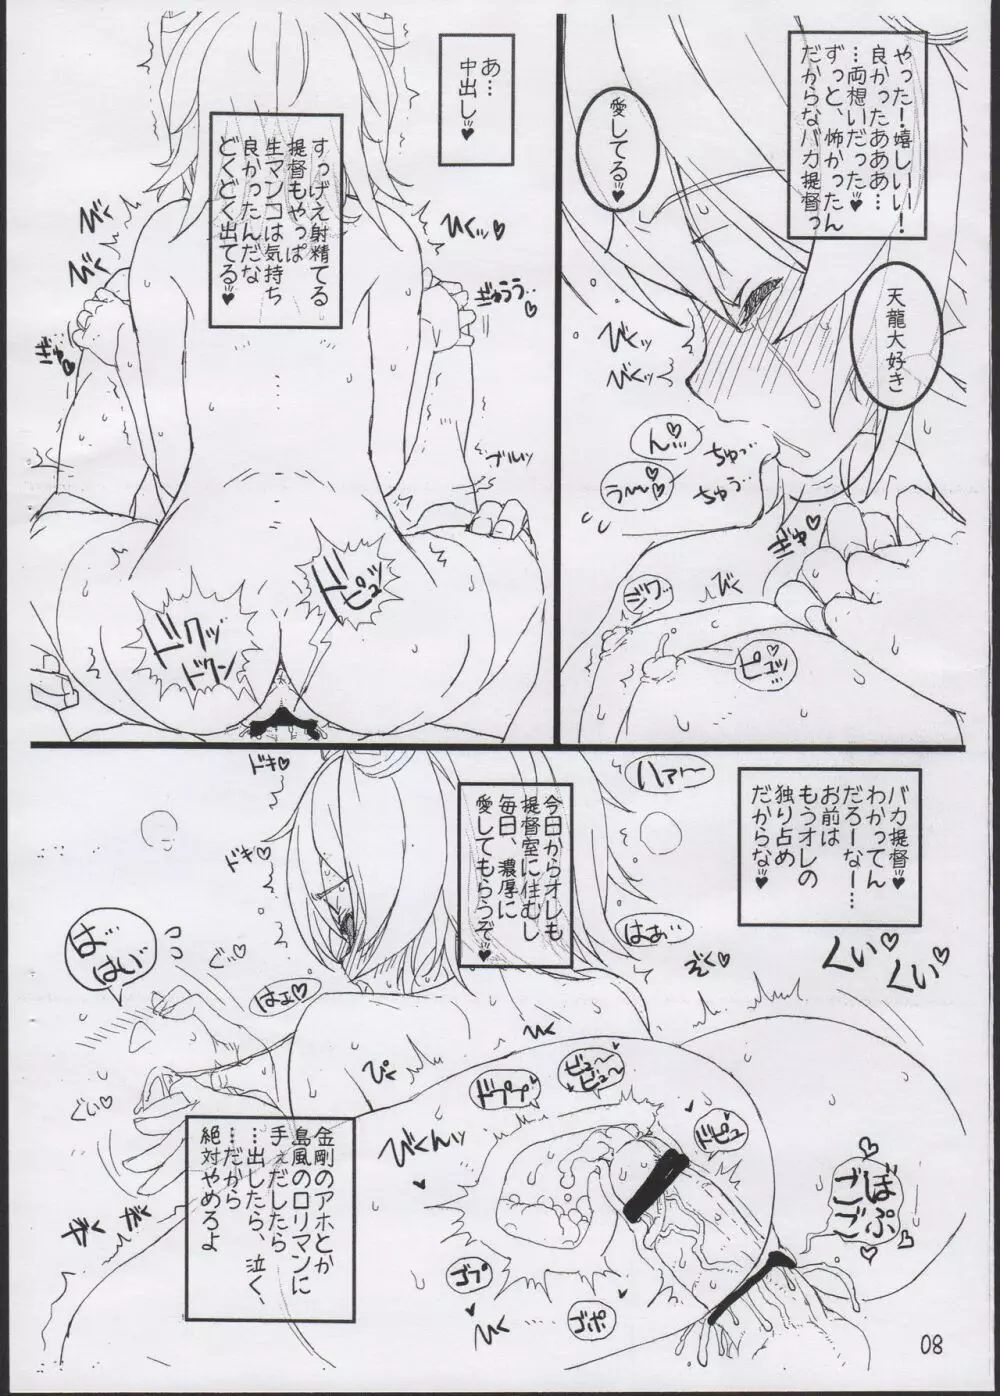 やった!嬉しいい!
良かったあああ…
…両想いだった♥
ずっと、怖かったん
だからなバカ提督っ
愛してる♥
天龍大好き
びくッ
びくッ
ん…♡
ちゅっ
う〜〜♡
ちゅう…
ぎゅ♡
びく
ジワ…
あ…
中出し♥
すっげえ射精てる
提督もやっぱ
生マンコは気持ち
良かったんだな
どくどく出てる♥
びく
びく
びくッ♡
ぎゅううう…♡
ぎゅ♡
ブルッ
ドピュッ
ドクッ
ドクン
バカ提督♥
わかってん
だろーなー…
お前は
もうオレの
独り占め
だからな♥
ハァ〜
くい♡
くい♡
今日からオレも
提督室に住むし
毎日、濃厚に
愛してもらうぞ♥
ドキ♡
ドキ♡
はぁ…
ぞく♡
ぐッ♡
はェ♡
ば…
はい♡
ぐい♡
びく
ぴく
びくんッ
ドププ
ビュ〜
ビュ〜
ドピュ
ぼぷ
ゴプ
ゴポ
08